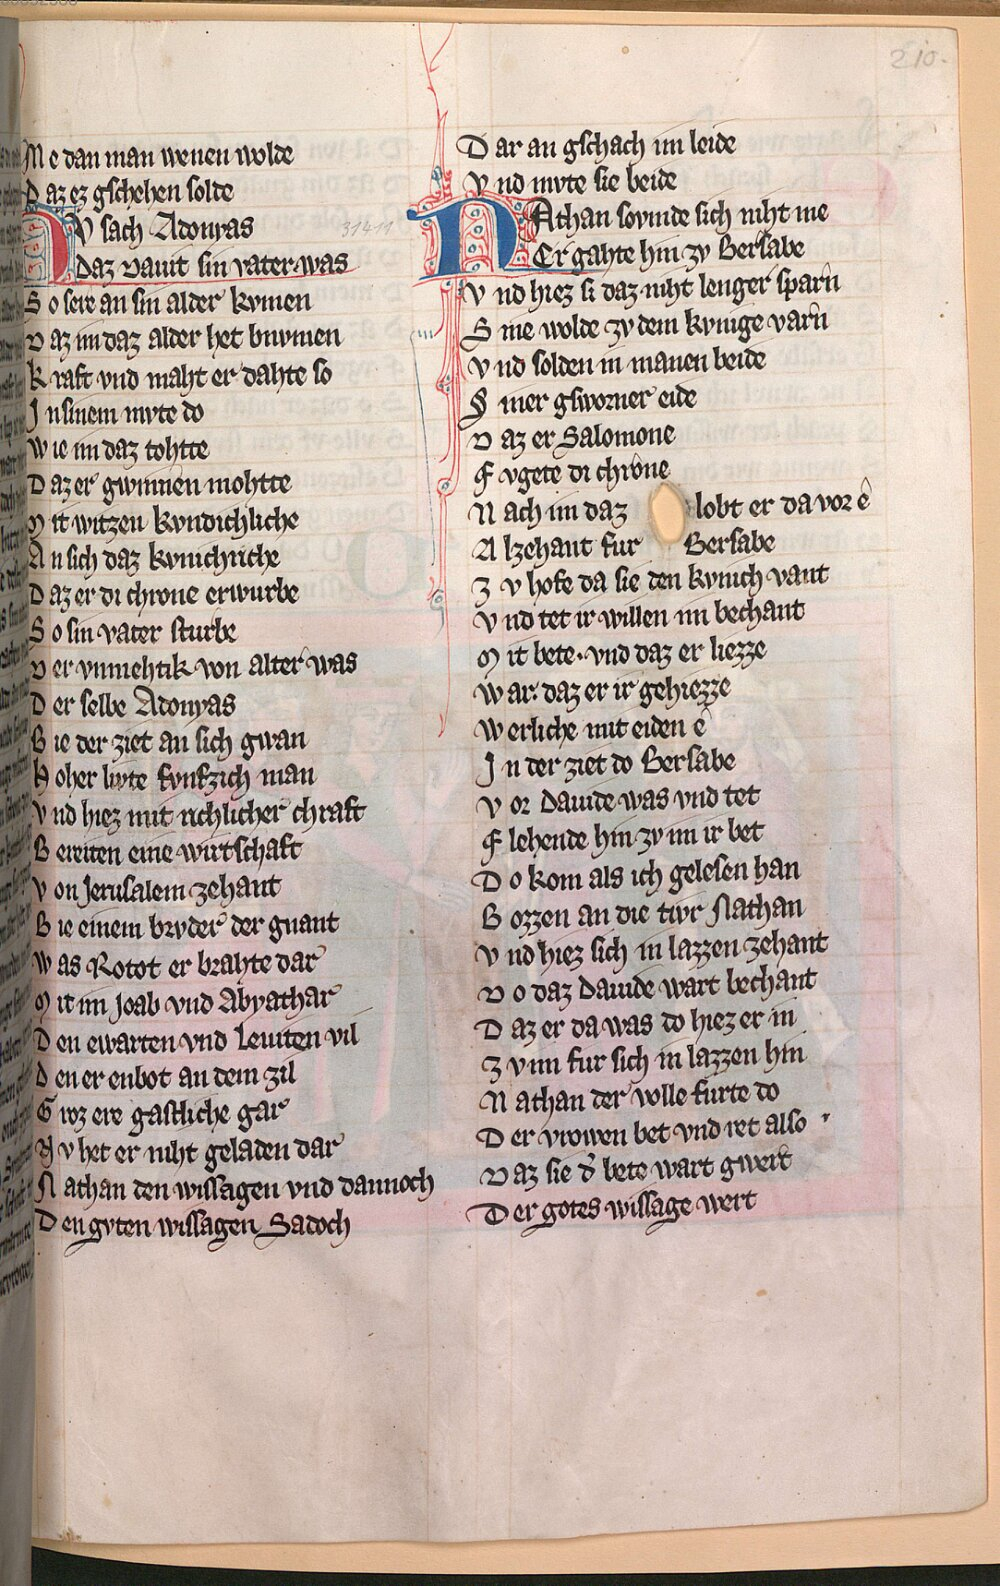 210.
Me dan man wenen wolde
Daz ez gschehen solde
Nv sach Adonyas
31411
Daz dauit sin vater was
So sere an sin alder kvmen
Daz im daz alder het bnvmen
Kraft vnd maht er dahte so
In sinem mvte do
Wie im daz tohtte
Daz er gwinnen mohtte
Mit witzen kvndichliche
An sich daz kvnichriche
Daz er di chrone erwurbe
So sin vater sturbe
Der vnmehtik von alter was
Der selbe Adonyas
Bie der ziet an sich gwan
Hoher livte fvnfzich man
Vnd hiez mit richlicher chraft
Bereiten eine wirtschaft
Von Jerusalem zehant
Bie einem brvder der gnant
Was Rotot er brahte dar
Mit im Joab vnd Abyathar
Den ewarten vnd Leuiten vil
Den er enbot an dem zil
Groz ere gastliche gar
Nv het er niht geladen dar
Nathan den wissagen vnd dannoch
Den gvten wissagen Sadoch
Dar an gschach im leide
Vnd mvte sie beide
Nathan sovmde sich niht me
Er gahte hin zv Bersabe
Vnd hiez si daz niht lenger sparn
Sine wolde zv dem kvnige varn
Vnd solden in manen beide
Siner gsworner eide
Daz er Salomone
Fvgete di chrone
Nach im daz lobt er da vor ê
Alzehant fur Bersabe
Zv hofe da sie den kvnich vant
Vnd tet ir willen im bechant
Mit bete. vnd daz er liezze
War. daz er ir gehiezze
Werliche mit eiden ê
In der ziet do Bersabe
Vor Dauide was vnd tet
Flehende hin zv im ir bet
Do kom als ich gelesen han
Bozzen an die tivr Nathan
Vnd hiez sich in lazzen zehant
Do daz Dauide wart bechant
Daz er da was do hiez er in
Zv im fur sich in lazzen hin
Nathan der volle furte do
Der vrowen bet vnd ret also
Daz sie d̕ bete wart gwert
Der gotes wissage wert